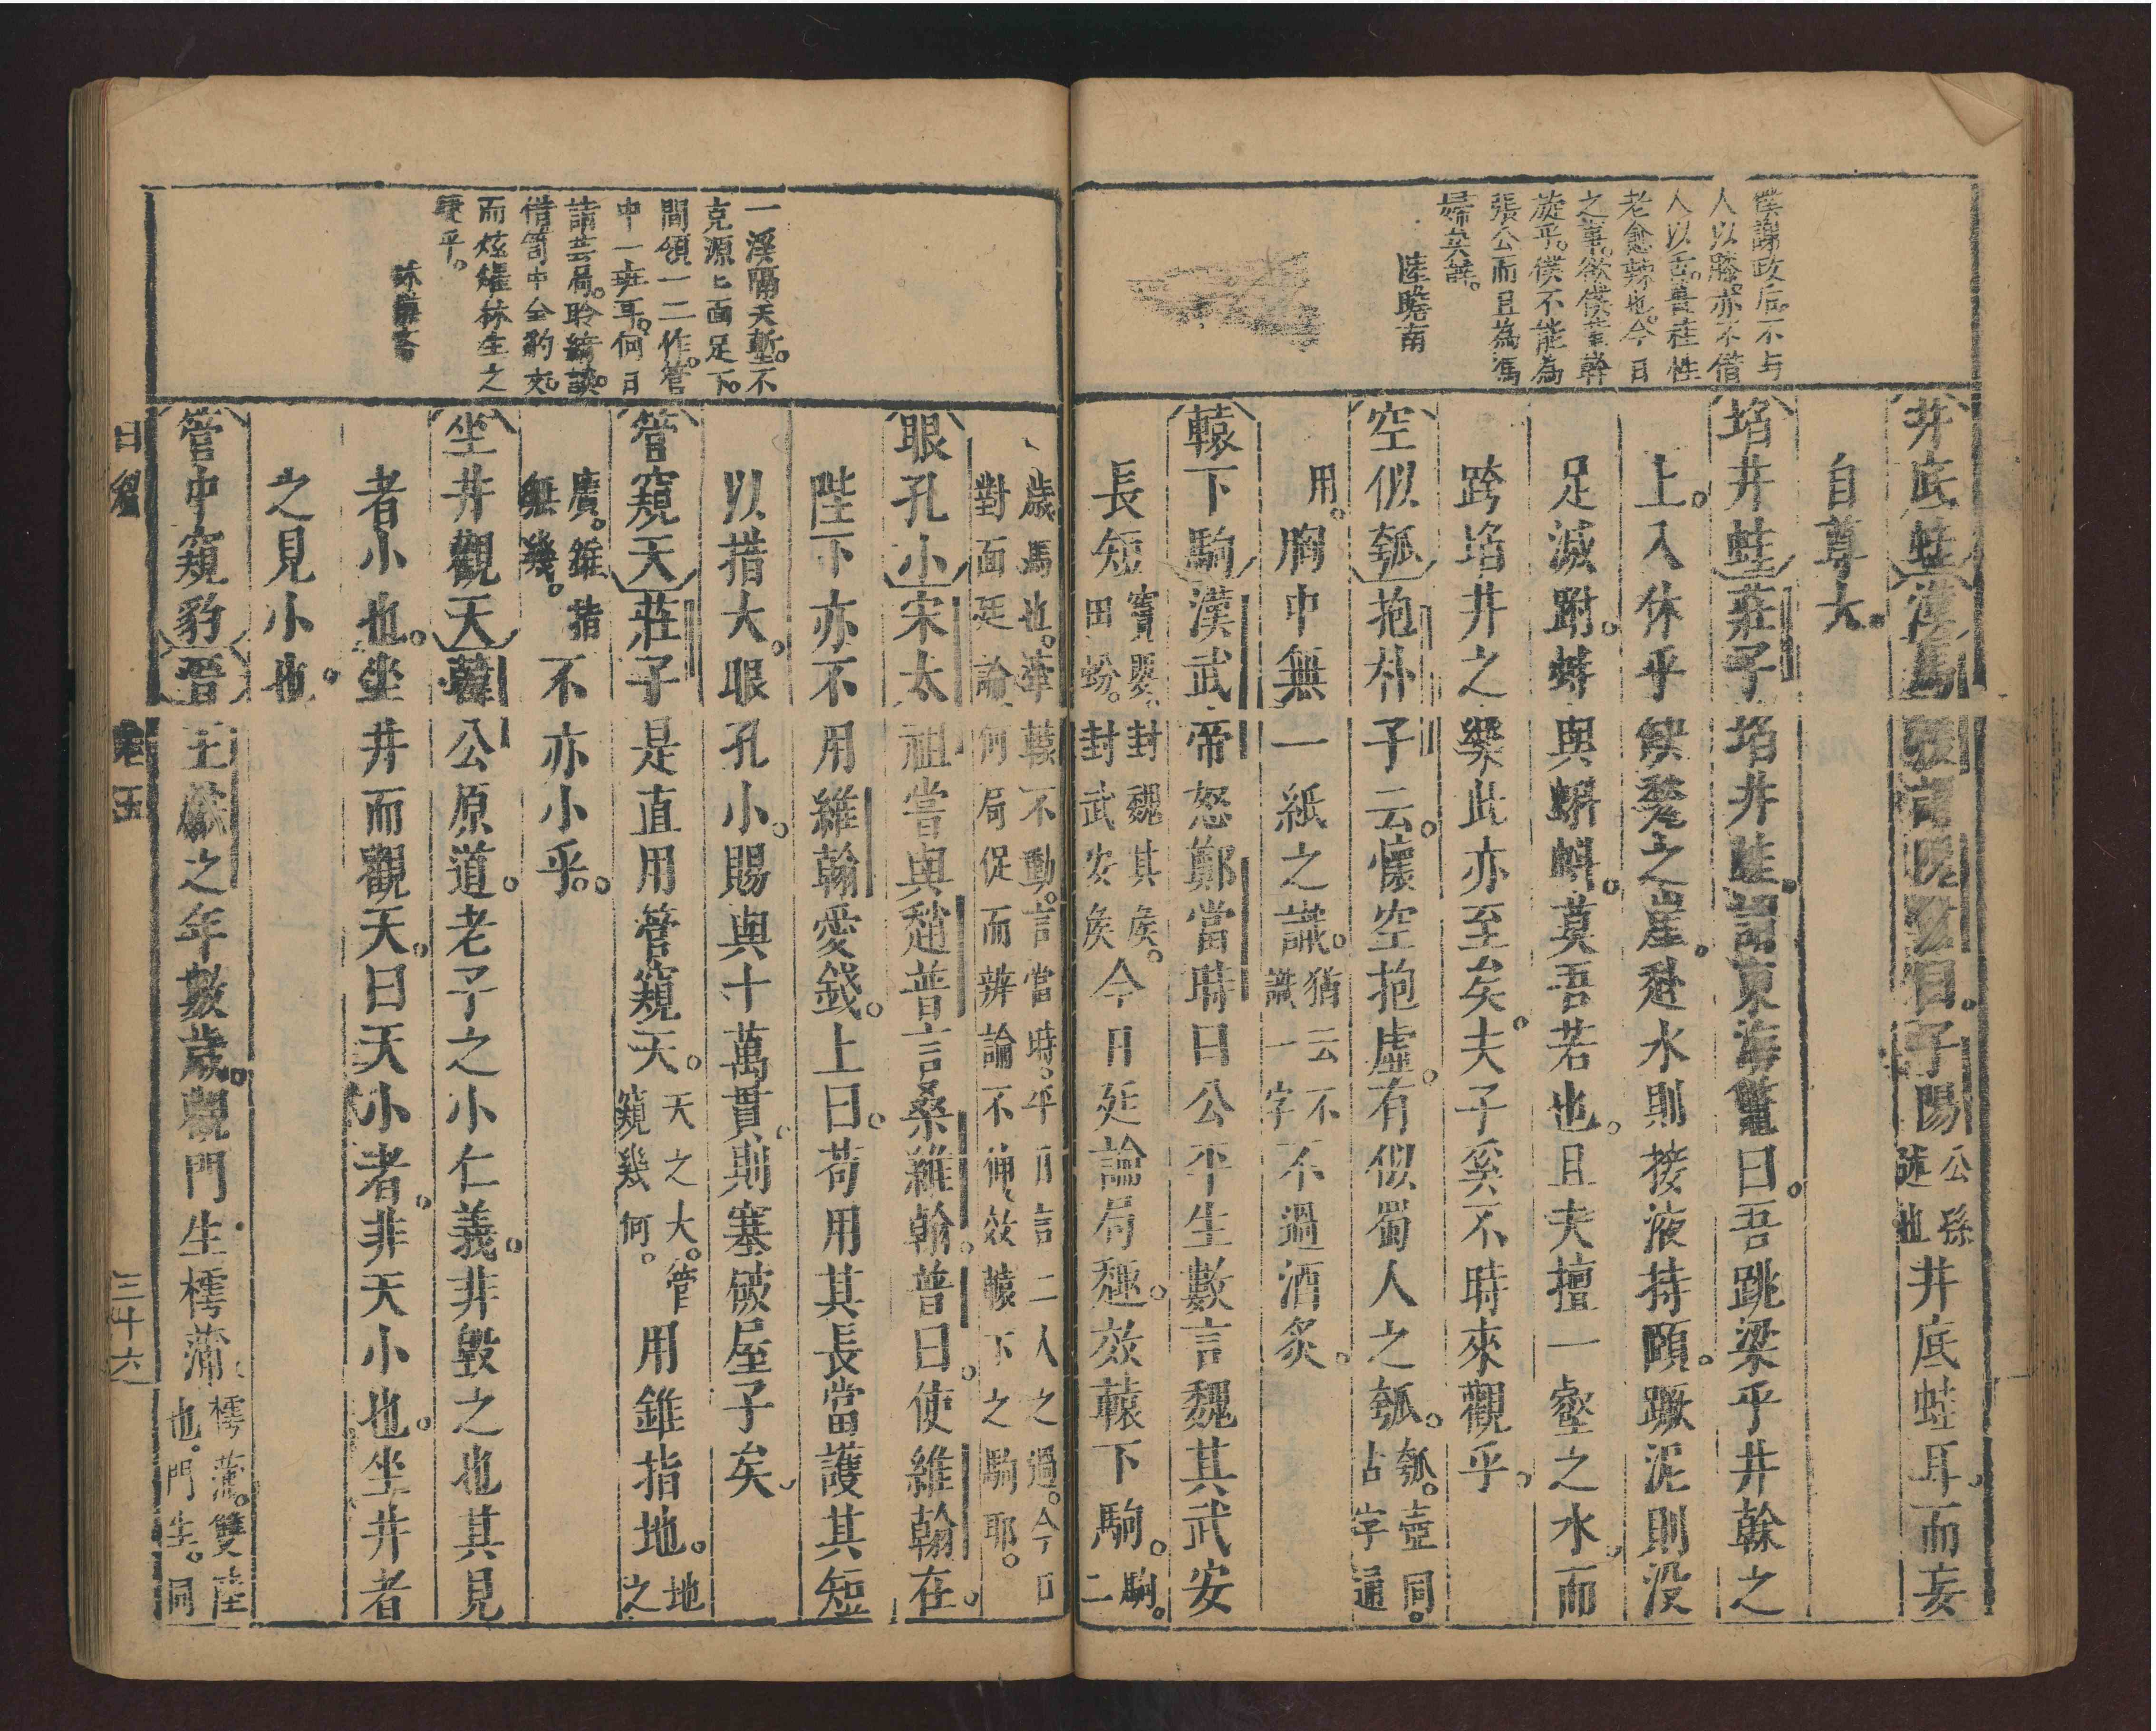 僕謝政后。不与
人以䠂。亦不借
人以舌。薑桂性
老愈辣也。今日
之事。欲僕董幹
旋乎。僕不能為
張公而且為馮
婦矣。
陸瞻南
井底蛙漢馬援謂隗囂曰。子陽公孫述也井底蛙耳。而妄
自尊大。
埳井蛙莊子埳井䵷。謂東海鱉曰。吾跳梁乎井榦之
上。入休乎缺甃之崖。赴水則接液持頤。蹶泥則沒
足滅跗。蚌與蝌蚪。莫吾若也。且夫擅一壑之水。而
跨埳井之樂此亦至矣。夫子奚不時來觀乎。
空似瓠抱朴子云。懷空抱虛。有似蜀人之瓠。瓠。壺同。古字通
用。胸中無一紙之識。猶云不識一字不過酒炙。
轅下駒漢武帝怒鄭當時曰公平生數言魏其武安
長短竇嬰。封魏其侯。田蚡。封武安侯今日廷論局趣。效轅下駒。駒。二
歲馬也。牽轅不動。言當時。平日言二人之過。今日
對面廷論何局促而辨論不伸、效轅下之駒耶。
眼孔小宋太祖嘗與趙普言桑維翰。普曰。使維翰在。
陛下亦不用維翰愛錢。上曰。苟用其長當護其短
以措大。眼孔小。賜與十萬貫。則塞破屋子矣
管窺天莊子是直用管窺天。天之大。管窺幾何。用錐指地。地之
廣。錐指無幾。不亦小乎。
坐井觀天韓公原道。老子之小仁義。非毀之也其見
者小也。坐井而觀天。曰天小者。非天小也。坐井者
之見小也。
管中窺豹晉王獻之年數歲。觀門生樗蒲樗蒲。雙陸也。門生。同
一溪隔天塹。不
克源上面足下。
間領一二作。管
中一班耳。何日
請芸局。聆緒談。
借笥中全豹文。
而炫耀秣生之
睫乎。
日 卷五 三十六